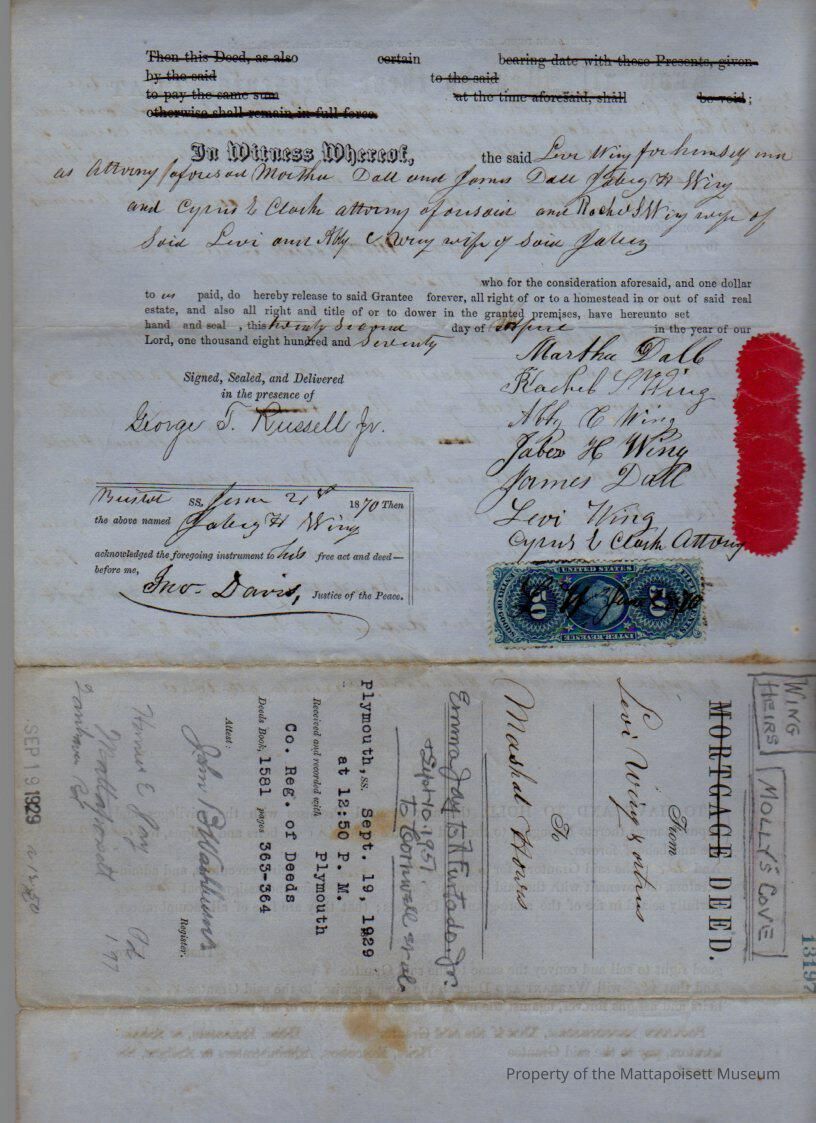 Then this Deed, as also certain bearing date with these Presents, given
by the said to the said
to pay the same sum at the time aforesaid, shall be void ;
otherwise shall remain in full force.
In Witness Whereof, the said Levi Wing for himself and
as Attorny aforesaid Martha Dall and James Dall Jabez H Wing
and Cyrus E Clark attorny aforesaid and Rachel S Wing wife of
Said Levi and Abby C Wing wife of Said Jabez
who for the consideration aforesaid, and one dollar
to us paid, do hereby release to said Grantee forever, all right of or to a homestead in or out of said real
estate, and also all right and title of or to dower in the granted premises, have hereunto set
hand and seal , this twenty Second day of in the year of our
Lord, one thousand eight hundred and Seventy
Signed, Sealed, and Delivered
in the presence of
George T. Russell Jr.
Martha Dall
Rachel S Wing
Abby C Wing
Jabez H Wing
James Dall
Levi Wing
Cyrus E Clark Attorny
Bristol SS. June 21st 1870 Then
the above named Jabez H Wing
acknowledged the foregoing instrument to his free act and deed—
before me,
Jno. Davis, Justice of the Peace.
UNITED STATES
50 50
INTER. REVENUE
WING HEIRS
MOLLY'S COVE
13197
MORTGAGE DEED.
From
Levi Wing & others
To
Mashal
Emma Jay to A Furtado Jr.
Sept 10. 1951
To Cornwell et al.
Plymouth, ss. Sept. 19, 1929
at 12:50 P. M.
Received and recorded with Plymouth
Co. Reg. of Deeds
Deeds Book, 1581 pages 363-364
Attest:
John B Washburn
Register.
E Jay
Mattapoisett
SEP 19 1929
Property of the Mattapoisett Museum